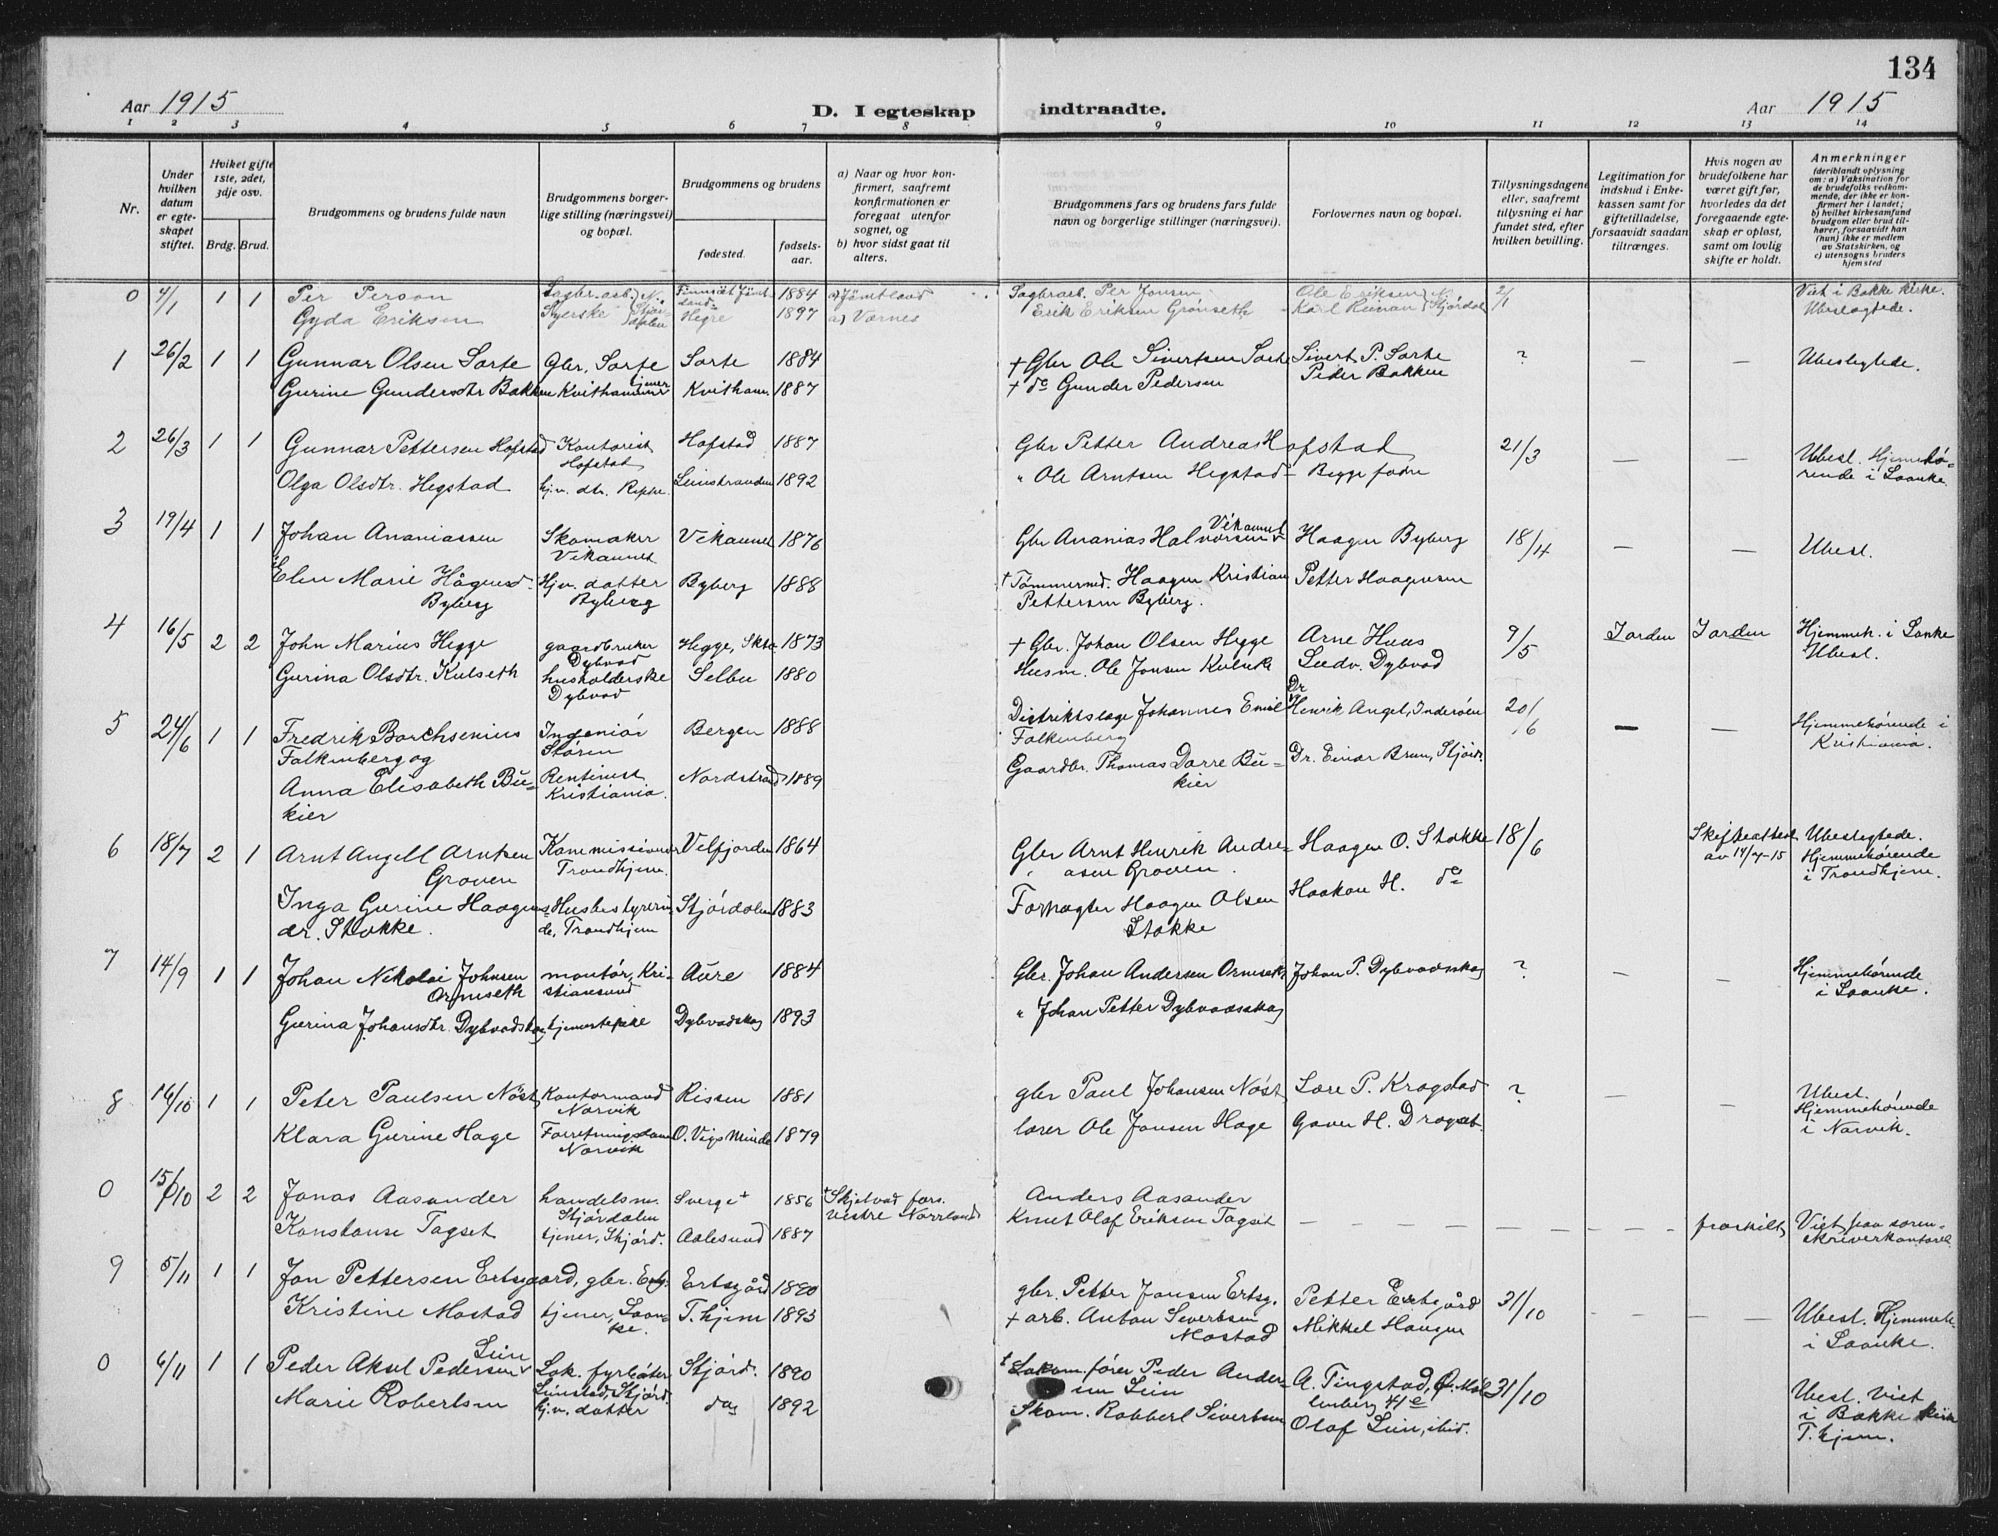 134
Aar 1915
D. I egteskap indtraadte.
Aar 1915
1 2 3 4 5 6 7 8 9 10 11 12 13 14
Nr.
Under hvilken datum er egteskapet stiftet.
Hvilket gifte 1ste, 2det, 3dje osv.
Brdg. Brud.
Brudgommens og brudens fulde navn
Brudgommens borgerlige stilling (næringsvei) og bopæl.
Brudgommens og brudens
fødested.
fødselsaar.
a) Naar og hvor konfirmert, saafremt konfirmationen er foregaat utenfor sognet, og
b) hvor sidst gaat til alters.
Brudgommens fars og brudens fars fulde navn og borgerlige stillinger (næringsvei).
Forlovernes navn og bopæl.
Tillysningsdagene eller, saafremt tillysning ei har fundet sted, efter hvilken bevilling.
Legitimation for indskud i Enkekassen samt for giftetilladelse, forsaavidt saadan tiltrænges.
Hvis nogen av brudefolkene har været gift før, hvorledes da det foregaaende egteskap er opløst, samt om lovlig skifte er holdt.
Anmerkninger
(deriblandt oplysning om: a) Vaksination for de brudefolks vedkommende, der ikke er konfirmert her i landet;
b) hvilket kirkesamfund brudgom eller brud tilhører, forsaavidt han (hun) ikke er medlem av Statskirken, og
c) utensogns bruders hjemsted
0 4/1 1 1 Per Person Sagbr.arb. 1884 a) Jämtland Sagbrarb. Per Jonsen Ole Eriksen 2/1 Viet i Bakke kirke.
Gyda Eriksen Syerske Hegre 1897 a) Værnes Erik Eriksen Grönseth Karl Stjørdal Ubeslegtede.
1 26/2 1 1 Gunnar Olsen Sorte Gbr. Sorte Sorte 1884 + Gbr Ole Sivertsen Sorte Sivert P. Sorte ? — — Ubeslegtede.
Gurine Gundersdtr Bakken tjener Kvithammer Kvitham. 1887 + do Gunder Pedersen Peder Bakken
2 26/3 1 1 Gunnar Pettersen Hofstad Kontorist Hofstad Hofstad 1887 Gbr Petter Andreas Hofstad 21/3 — — Ubesl. Hjemmehørende i Laanke.
Olga Olsdtr. Hegstad hjv. dtr. Ripke Leinstranden 1892 " Ole Arntsen Hegstad - Begge fædre
3 19/4 1 1 Johan Ananiassen Skomaker Vikaunet Vikaunet 1876 Gbr Ananias Halvorsen Vikaunet Haagen Byberg 18/4 — — Ubesl.
Elen Marie Hågensd. Byberg Hjv. datter Byberg Byberg 1888 + Tømmermd. Haagen Kristian Pettersen Byberg. Petter Haagensen
4 16/5 2 2 John Marius Hegge gaardbruker Dybvad Hegge, Skto 1873 + Gbr. Johan Olsen Hegge Arne Huus 9/5 I orden I orden Hjemmeh. i Lanke Ubesl.
Gurina Olsdtr. Kulseth husholderske Dybvad Selbu 1880 Husm. Ole Jonsen Kulseth Ludv. Dybvad
5 24/6 1 1 Fredrik Borchsenius Falkenberg og Ingeniør Støren Bergen 1888 Distriktslæge Johannes Emil Falkenberg Dr Henrik Angel, Inderøen 20/6 — — Hjemmehørende i Kristiania.
Anna Elisabeth Bükier Rentinist Kristiania. Nordstrand 1889 Gaardbr. Thomas Dorre Bükier Dr. Einar Brun, Stjørd.
6 18/7 2 1 Arnt Angell Arntsen Groven Kommissioner Trondhjem. Velfjorden 1864 Gbr Arnt Henrik Andreasen Groven. Haagen O. Stokke 18/6 Skifteattest av 14/7-15 Ubeslegtede. Hjemmehørende i Trondhjem.
Inga Gurine Haagensdr. Stokke. Husbestyrerinde, Trondhjem Stjørdalen 1883 Forpagter Haagen Olsen Stokke Haakon H. do
7 14/9 1 1 Johan Nikolai Johnsen Ormseth montör, Kristiansund Aure 1884 Gbr. Johan Andersen Ormseth Johan P. Dybvadskog ? — — Hjemmehørende i Laanke.
Gurina Johansdtr. Dybvadskog, tjenestepike Dybvadskog 1893 " Johan Petter Dybvadsskog
8 16/10 1 1 Peter Paulsen Nöst Kontormand Narvik Rissen 1881 gbr Paul Johansen Nöst Lore P. Krogstad ? — — Ubesl. Hjemmehörende i Narvik.
Klara Gurine Hage Forretningsdame Narvik O. Vigs Minde 1879 lærer Ole Jonsen Hage H. Dragset.
0 15/10 2 2 Jonas Aasander handelsm. Stjørdalen Sverge+ 1856 + Skjelvad fors. vestre Norrland Anders Aasander
Konstanse Tagset tjener, Stjørd. Aalesund 1887 Knut Olaf Eriksen Tagset — — — — — fraskilt Viet paa sorenskriverkontoret.
9 5/11 1 1 Jon Pettersen Ertsgaard, gbr. Ertsg. Ertsgård 1890 gbr. Petter Jonsen Ertsg. Petter Ertsgård 31/10 — — Ubesl. Hjemmeh. i Laanke.
Kristine Mostad tjener, Laanke. T.hjem 1893 + arb. Anton Sivertsen Mostad Mikkel Haugen
0 6/11 1 1 Peder Aksel Pedersen Lein Lok. fyrbøter Leinstad, Stjørd. Stjørd. 1890 + Lokom.fører Peder Andersen Lein A. Tingstad, Ø. Møllenberg 41 e 31/10 Ubesl. Viet i Bakke kirke T.hjem.
Marie Robertsen hj.v. datter do 1892 Skom. Robbert Sivertsen Olaf Lein, ibid.